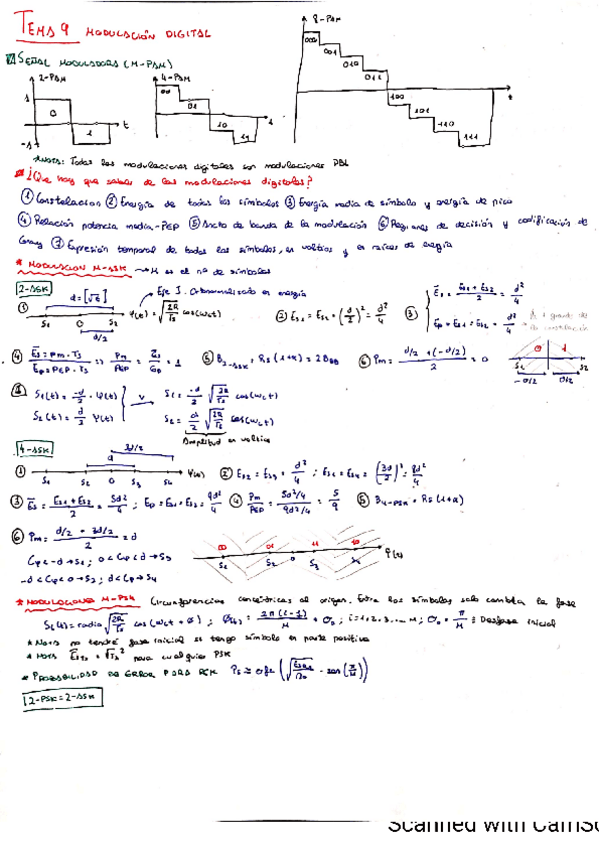 TEMA 9 MODULACIÓN DIGITAL
8-PAM
000
001
010
011
100
101
110
111
t
SEÑAL MODULADORA (M-PAM)
2-PAM
1
0
1
-1
t
4-PAM
00
01
10
11
t
*NOTA: Todas las modulaciones digitales son modulaciones DBL
* ¿Que hay que saber de las modulaciones digitales?
① Constelacion ② Energía de todos los símbolos ③ Energía media de símbolo y energía de pico
④ Relación potencia media-PEP ⑤ Ancho de banda de la modulación ⑥ Regiones de decisión y codificación de
Gray ⑦ Expresión temporal de todos los símbolos, en voltios y en raíces de energía
* MODULACION M-ASK → M es el nº de símbolos
2-ASK
① d = [√E] → Eje I. Ortonormalizado en energía
S1 0 S2 φ(t) = √(2R/Ts) cos(ωct)
d/2
② Es1 = Es2 = (d/2)² = d²/4
③ Ēs = (Es1 + Es2)/2 = d²/4
Ep = Es1 = Es2 = d²/4
④ Ēs = Pm · Ts / Ep = PEP · Ts ⇒ Pm/PEP = Ēs/Ep = 1
⑤ B2-ASK = Rs (1+α) = 2BBB
⑥ Pm = (d/2 + (-d/2))/2 = 0
0 1
S1 S2
-d/2 d/2
⑦ S1(t) = -d/2 · φ(t)
S2(t) = d/2 φ(t)
V
S1 = -d/2 √(2R/Ts) cos(ωct)
S2 = d/2 √(2R/Ts) cos(ωct)
Amplitud en voltios
4-ASK
3d/2
d
① S1 S2 0 S3 S4 φ(t)
② Es2 = Es3 = d²/4 ; Es1 = Es4 = (3d/2)² = 9d²/4
③ Ēs = (Es1 + Es2)/2 = 5d²/4 ; Ep = Es1 = Es4 = 9d²/4
④ Pm/PEP = (5d²/4)/(9d²/4) = 5/9
⑤ B4-ASK = Rs (1+α)
⑥ Pm = (d/2 + 3d/2)/2 = d
Cφ < -d → S1 ; 0 < Cφ < d → S3
-d < Cφ < 0 → S2 ; d < Cφ → S4
00 01 11 10
S1 S2 0 S3 S4 φ(t)
* MODULACIONES M-PSK Circunferencias concéntricas al origen. Entre los símbolos solo cambia la fase
Si(t) = radio √(2R/Ts) cos(ωct + ø) ; øi = 2π(i-1)/M + σ0 ; i = 1, 2, 3, ... M ; σ0 = π/M = Desfase inicial
* NOTA no tendré fase inicial si tengo símbolo en parte positiva
* NOTA para cualquier PSK
* PROBABILIDAD DE ERROR PARA PSK
2-PSK = 2-ASK
Scanned with CamSc